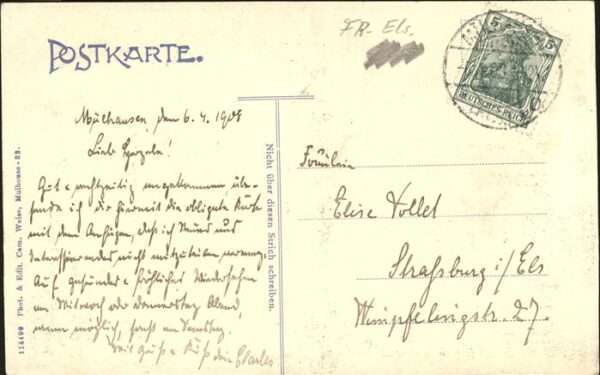 POSTKARTE.
FR- Els.
5 5
DEUTSCHES REICH
Mülhausen, den 6. 4. 1908
Lieb
Gut & rechtzeitig angekommen, über-
sende ich Dir hiermit die obligate Karte
mit dem Anfügen, daß ich Neues und
Interessierendes nicht mitzuteilen vermag.
Auf gesundes & fröhliches Wiedersehen
am Mittwoch oder Donnerstag Abend,
wenn möglich, sonst am Samstag.
Mit Gruß & Kuß Dein Charles
Nicht über diesen Strich schreiben.
114499 Phot. & Edit. Cam. Weiss, Mulhouse - 23.
Fräulein
Elise Vollet
Straßburg i/Els
Wimpfelingstr. 27.